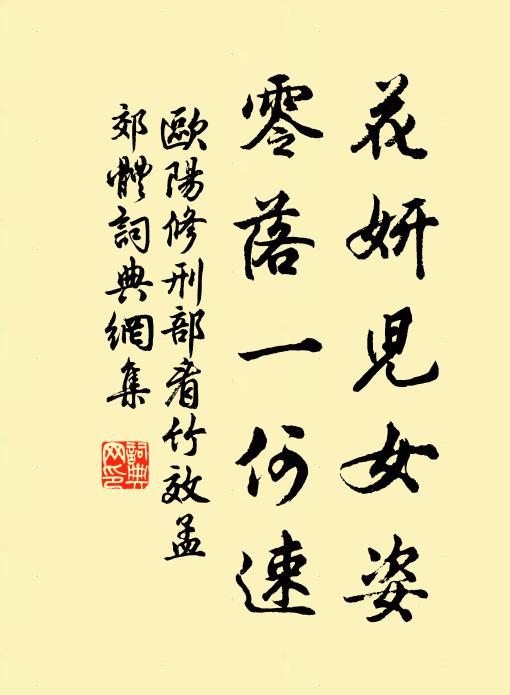 花妍兒女姿
零落一何速
歐陽修刑部看竹效孟
郊體詞典網集
詞典
网印